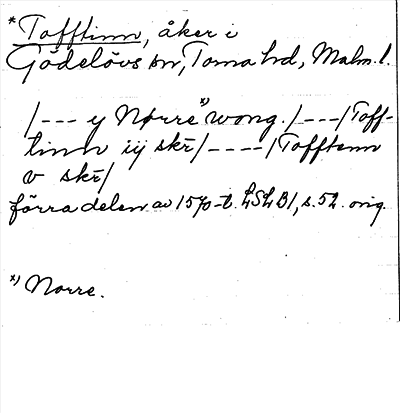 *Tofftinn, åker i
Gödelövs sn, Torna hd, Malm. l.
/--- y Nørre*) wong. /---/ Toff-
tinn iij skr̄/----/ Tofftenn
v skr̄/
förra delen av 1570-t. LSLB1, s. 52. orig.
*) Norre.